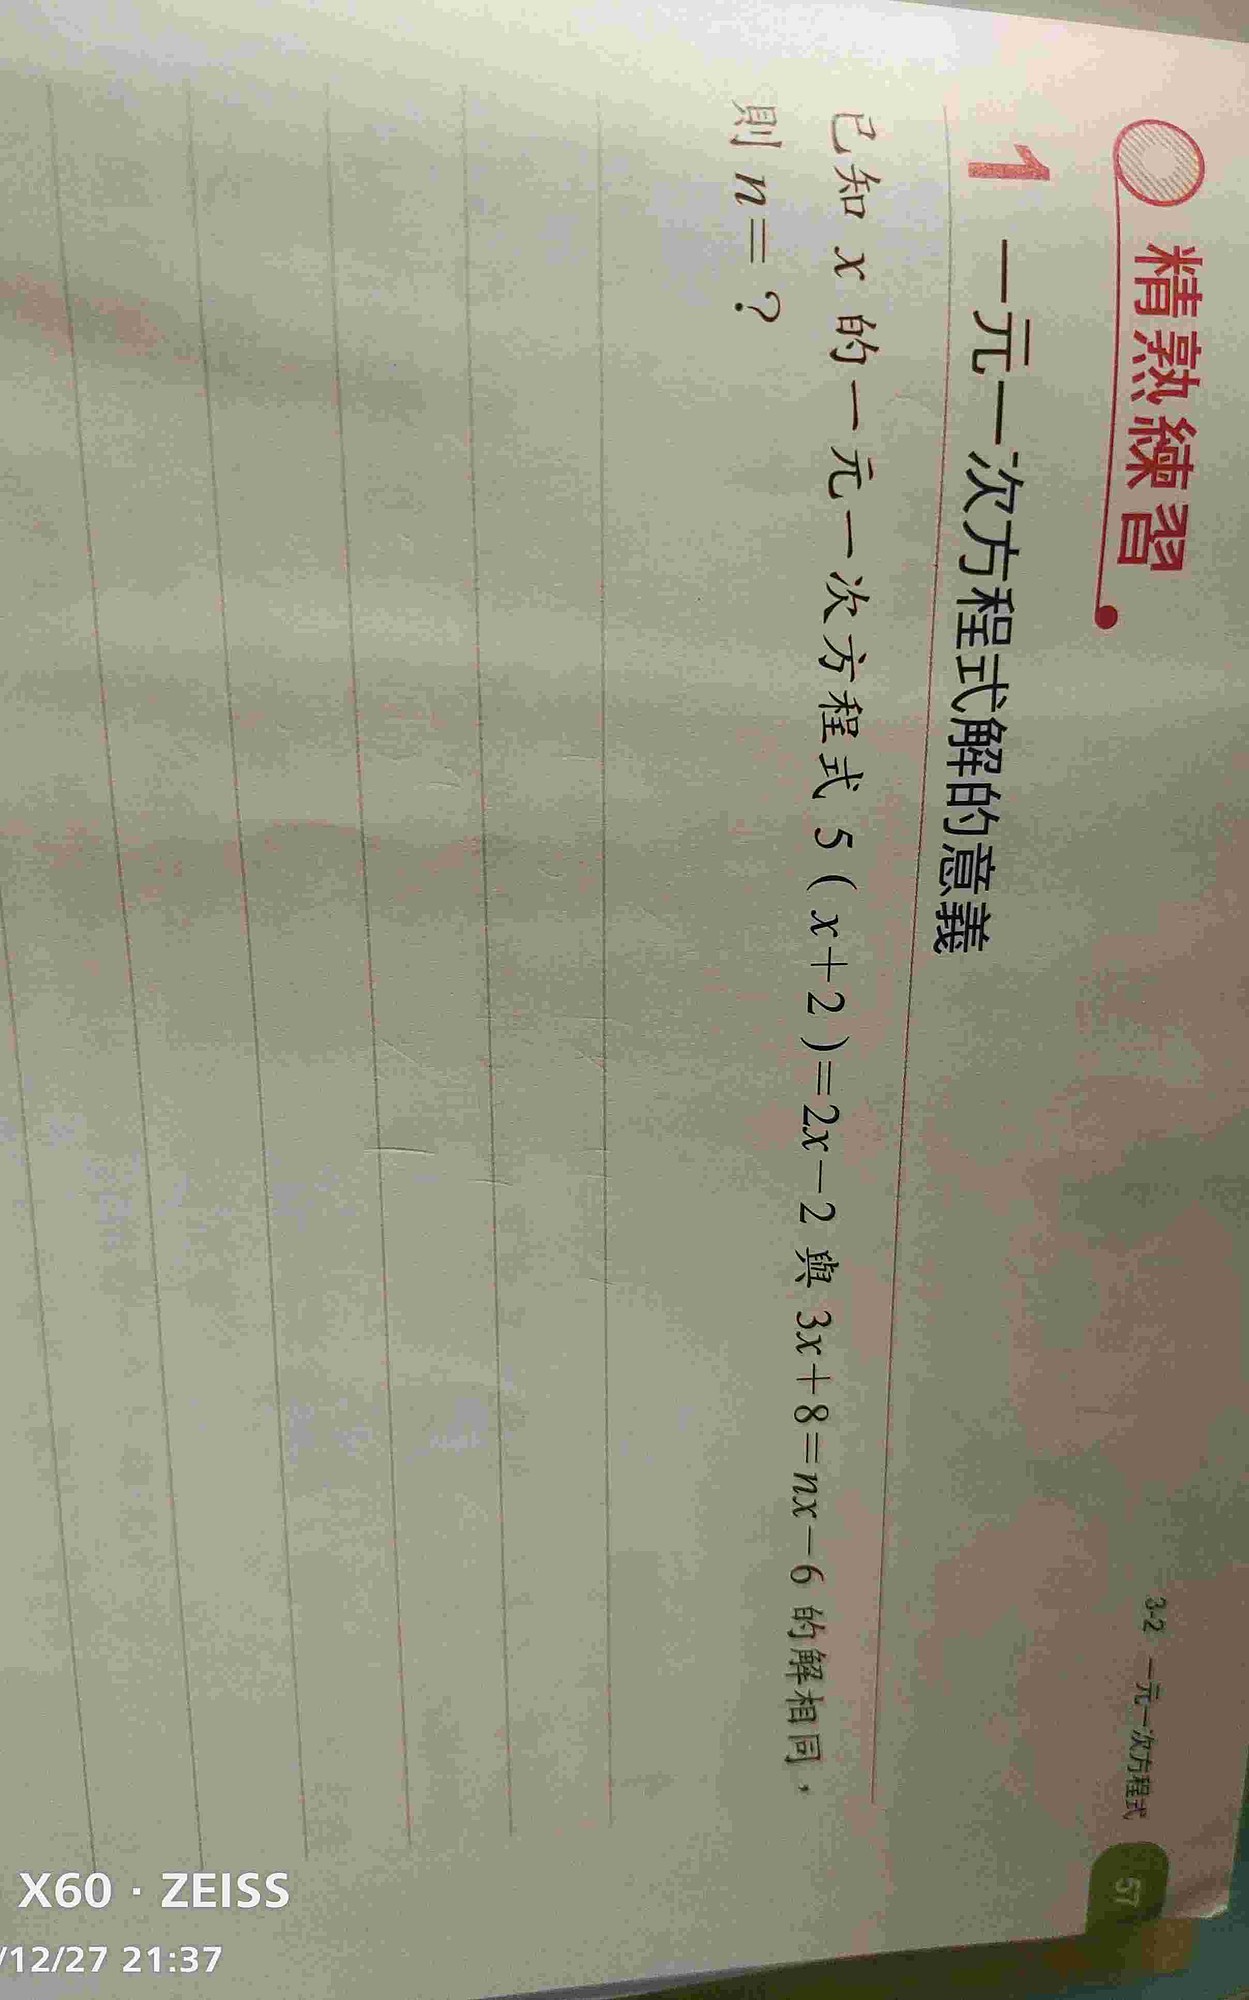 3-2 一元一次方程式 57
精熟練習
1 一元一次方程式解的意義
已知 x 的一元一次方程式 5(x+2)=2x-2 與 3x+8=nx-6 的解相同，
則 n=？
X60 · ZEISS
/12/27 21:37